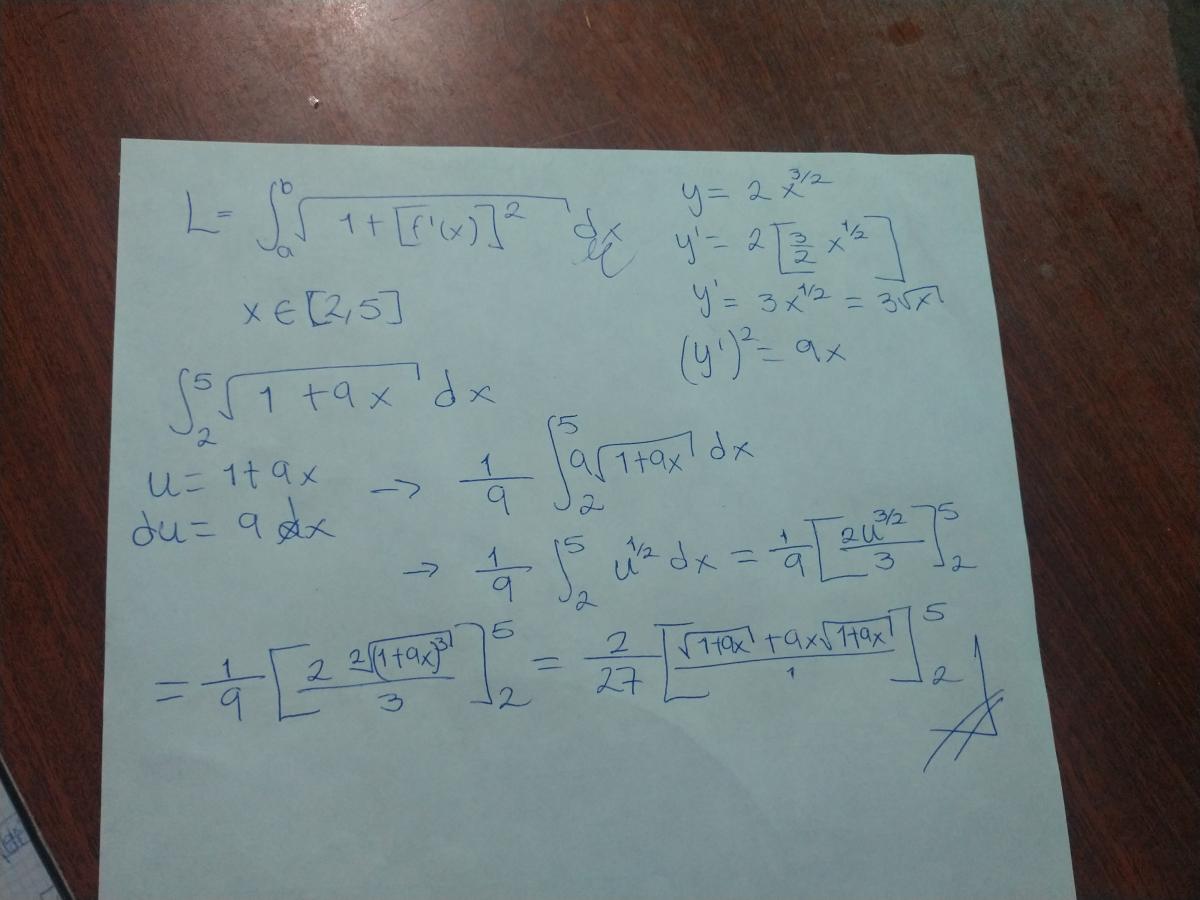 L = ∫_a^b √(1+[f'(x)]²) dx
x ∈ [2,5]
y = 2x^{3/2}
y' = 2[3/2 x^{1/2}]
y' = 3x^{1/2} = 3√x
(y')² = 9x
∫_2^5 √(1+9x) dx
u = 1+9x → 1/9 ∫_2^5 9√(1+9x) dx
du = 9 dx
→ 1/9 ∫_2^5 u^{1/2} dx = 1/9 [2u^{3/2}/3]_2^5
= 1/9 [2 2√(1+9x)³/3]_2^5 = 2/27 [√(1+9x) + 9x√(1+9x)/1]_2^5